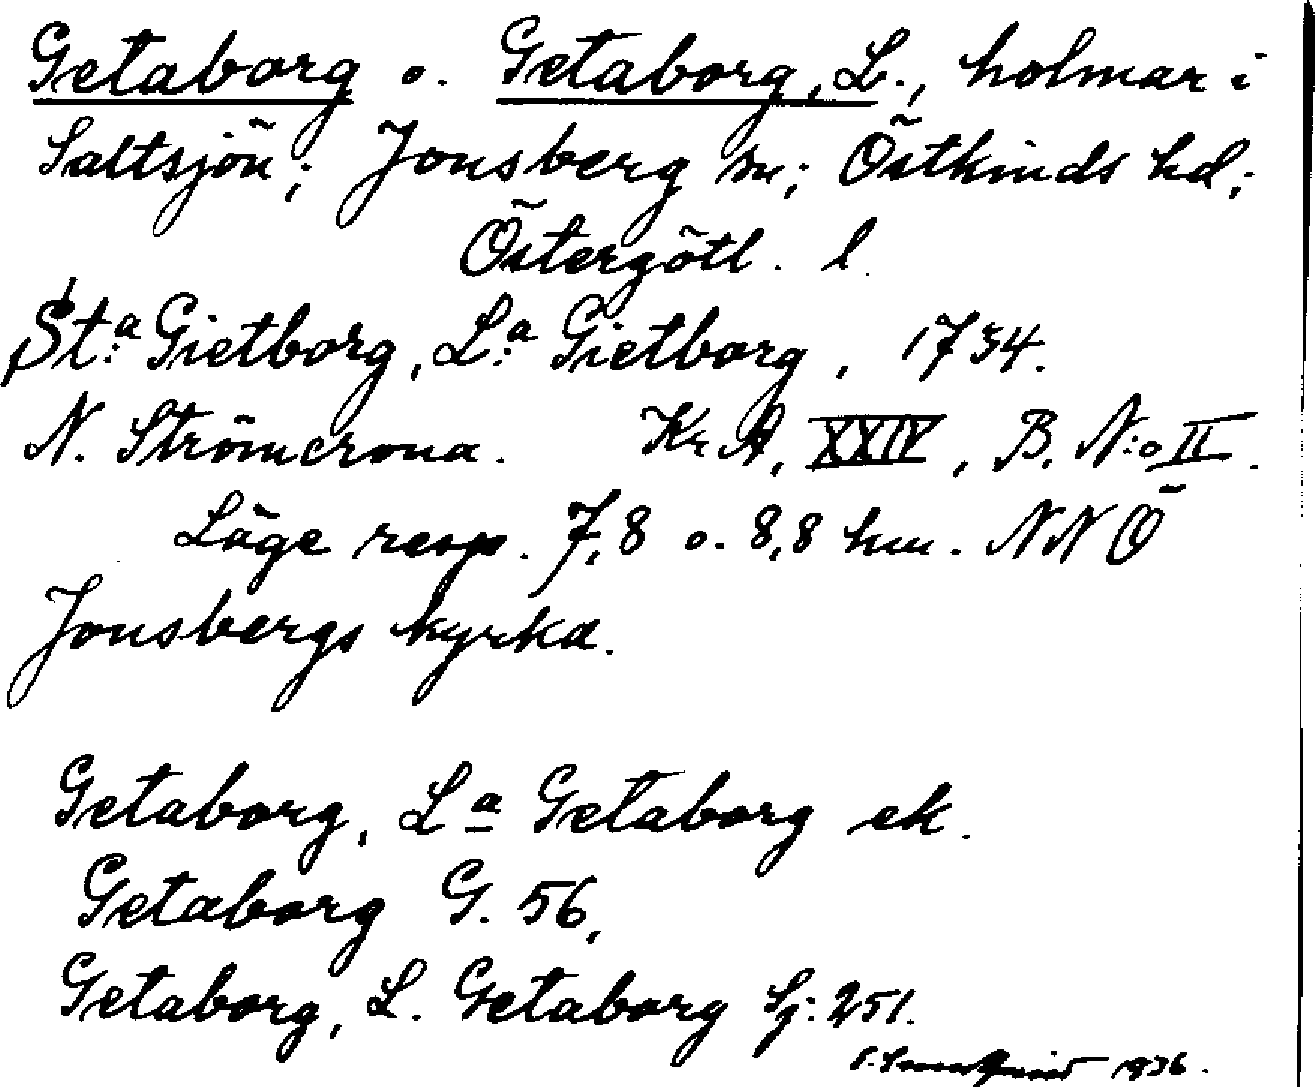 Getaborg o. Getaborg, L., holmar i
Saltsjön; Jonsberg sn; Östkinds hd;
Östergötl. l.
St:a Gietborg, L:a Gietborg, 1734.
N. Strömcrona. Kr. A, XXIV, B. N:o II.
Läge resp. 7,8 o. 8,8 km. NNÖ
Jonsbergs kyrka.
Getaborg, La Getaborg ek.
Getaborg G. 56,
Getaborg, L. Getaborg Sj: 251.
1936.